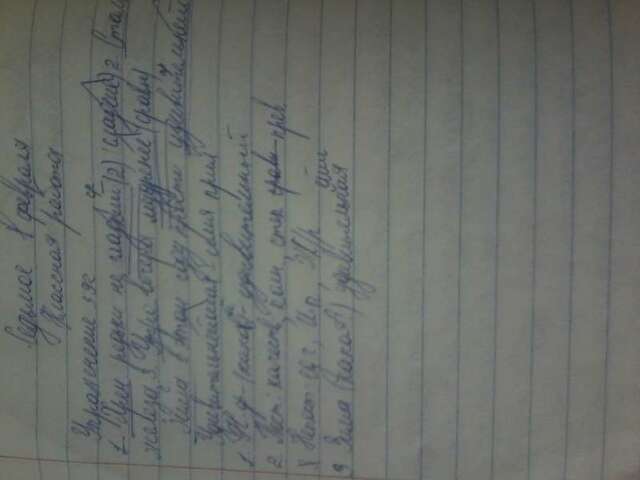 Седьмое февраля
Классная работа
Упражнение 392
1. Хрен редьки не (2) 2. Стал
железа 3. Утро вечера мудренее (сравн)
Зима в этом году просто удивительней
Удивительнейшая - имя прил
1. Н.ф - (какой) - удивительный
2. Пост: качеств, полн, степ срав прев
3 Непост: ед ч, И.п, Ж/р
3 Зима (какая) удивительная